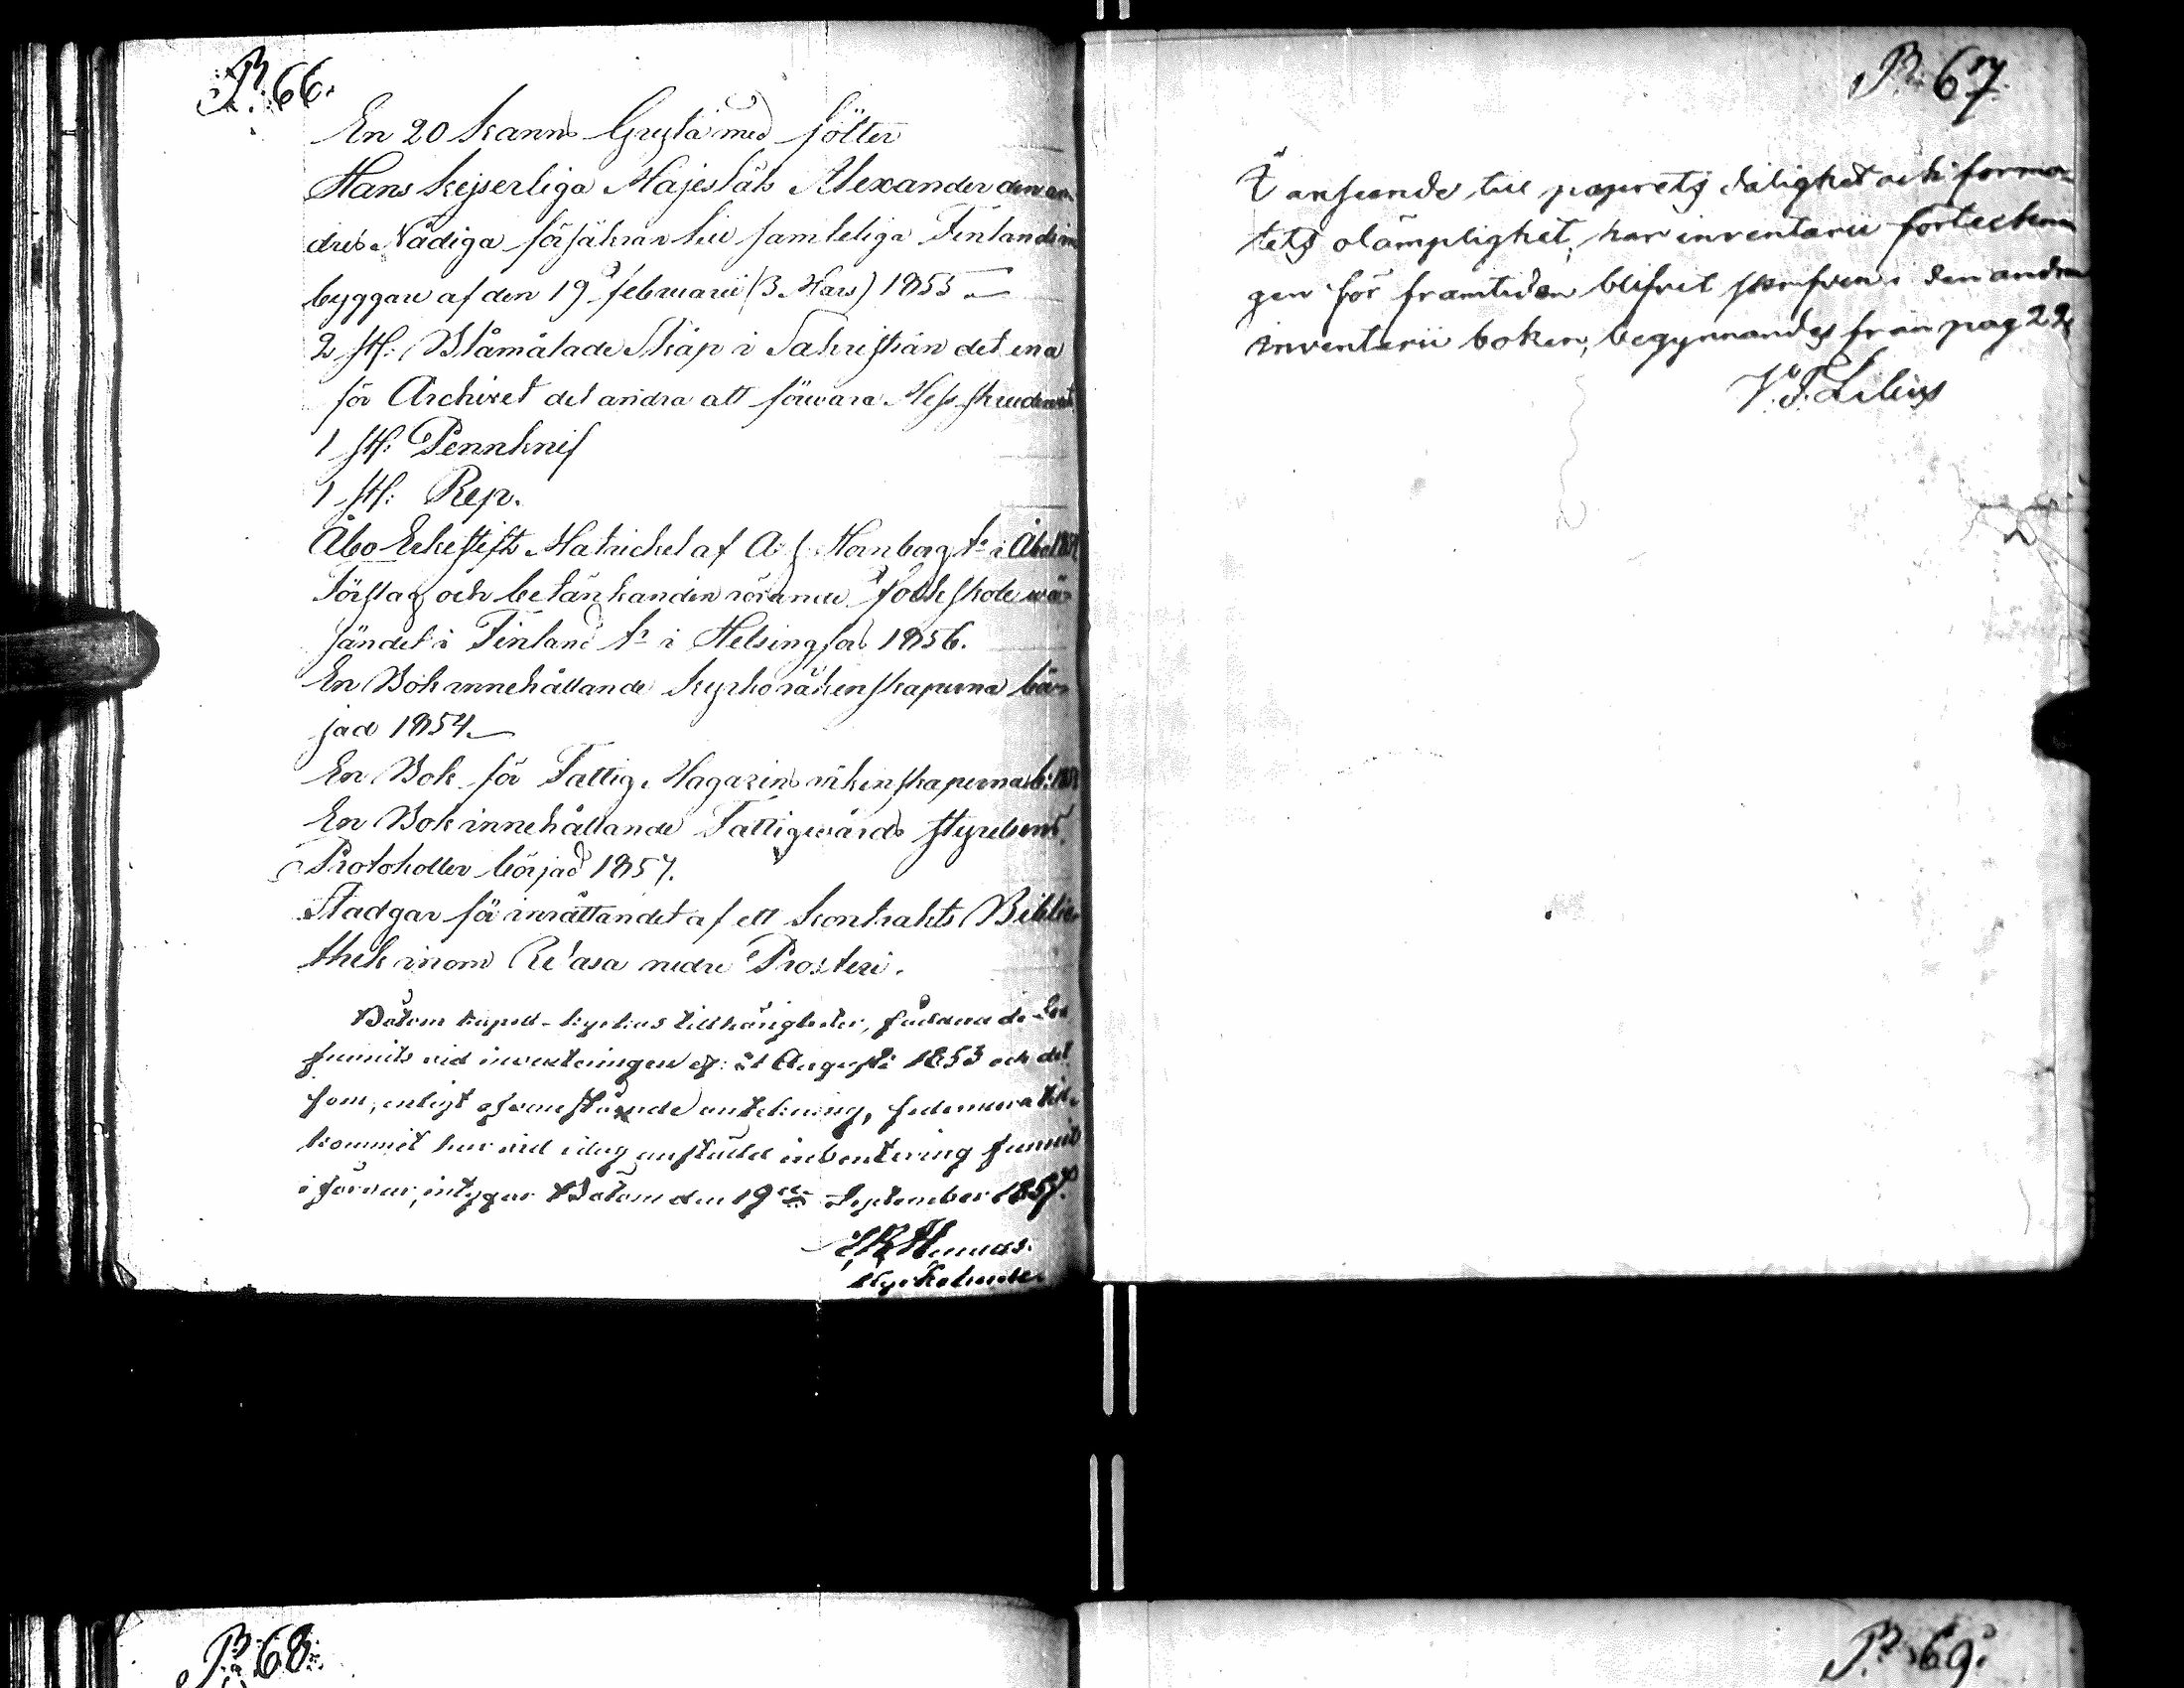 P: 66.
En 20 kanns Gryta med fötter
Hans Kejserliga Majestäts Alexander den an-
dres Nådiga försäkran till samteliga Finlands in
byggare af den 19 februarii (3 Mars) 1855
2 st: Blåmålade Skåp i Sakristian det ena
för Archivet det andra att förwara Messskruden
1 st: Pennknif
1 st: Rep.
Åbo Erkestifts Matrickel af A: Hornborg tr i Åbo
Förslag och betänkanden rörande folkskolewä-
sändet i Finland tr i Helsingfors 1856.
En Bok innehållande Kyrkoräkenskaperna bör-
jad 1854.
En Bok för Fattig Magazins räkenskaperna b:
En Bok innehållande Fattigwårds styrelsens
Protokoller börjad 1857.
Stadgar för inrättandet af ett Kontrakts Biblio-
thek inom Wasa nedre Prosteri.
Bötom kapell-kyrkas tillhörigheter, sådana de be-
funnits vid inventeringen d: 21 Augusti 1853 och det
som, enligt ofvanstående antekning, sedermera till-
kommit har vid idag anstäld inventering funnits
i förvar, intygar Bötom den 19de September 1857.
P. 67.
I anseende till paprets dålighet och forma-
tets olämplighet, har inventarii förteckni
gen för framtiden blifvit skrifven i den andra
inventarii boken, begynnandes från pag 22
V. F. Lilius
P: 68.
P: 69.